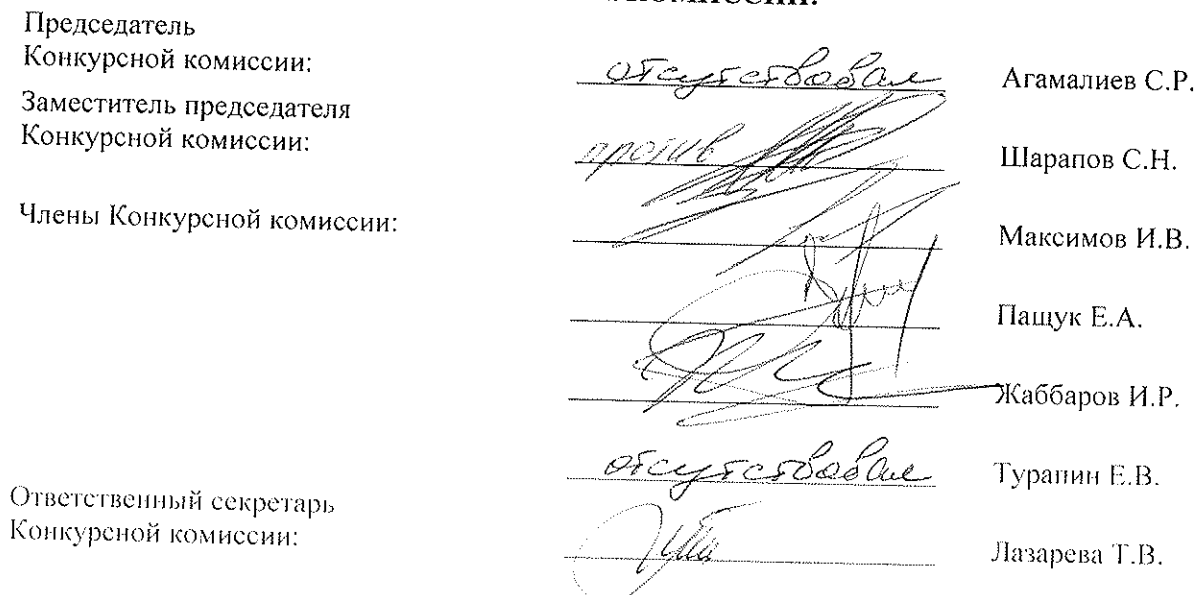 Председатель
Конкурсной комиссии:
отсутствовал Агамалиев С.Р.
Заместитель председателя
Конкурсной комиссии:
против Шарапов С.Н.
Члены Конкурсной комиссии:
Максимов И.В.
Пащук Е.А.
Жаббаров И.Р.
отсутствовал Турапин Е.В.
Ответственный секретарь
Конкурсной комиссии:
Лазарева Т.В.